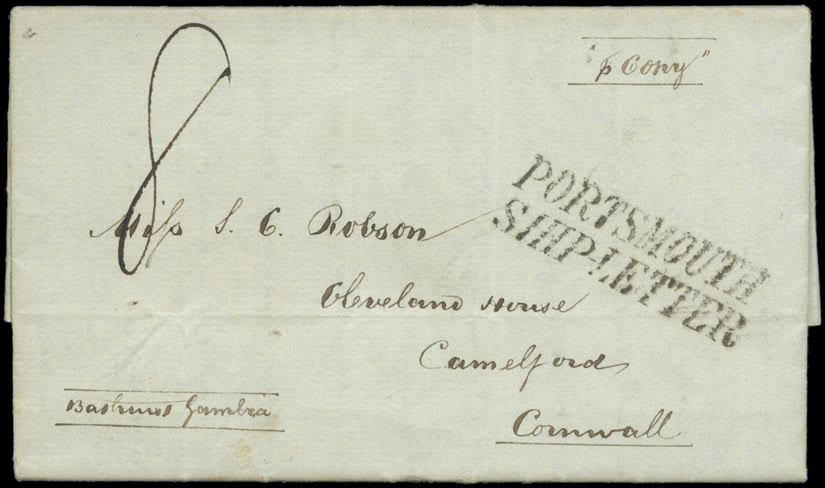 8
"p Cony"
PORTSMOUTH
SHIP-LETTER
Miss S. C. Robson
Cleveland House
Camelford
Cornwall
Gambia